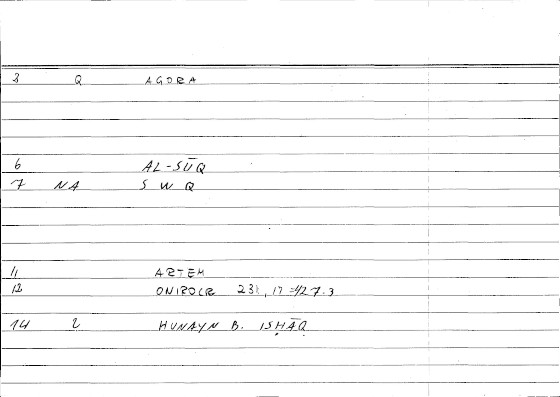 3 Q AGORA
6 AL-SŪQ
7 NA S W Q
11 ARTEM
12 ONIROCR 23 , 17 = 427.3
14 2 ḤUNAYN B. ISḤĀQ